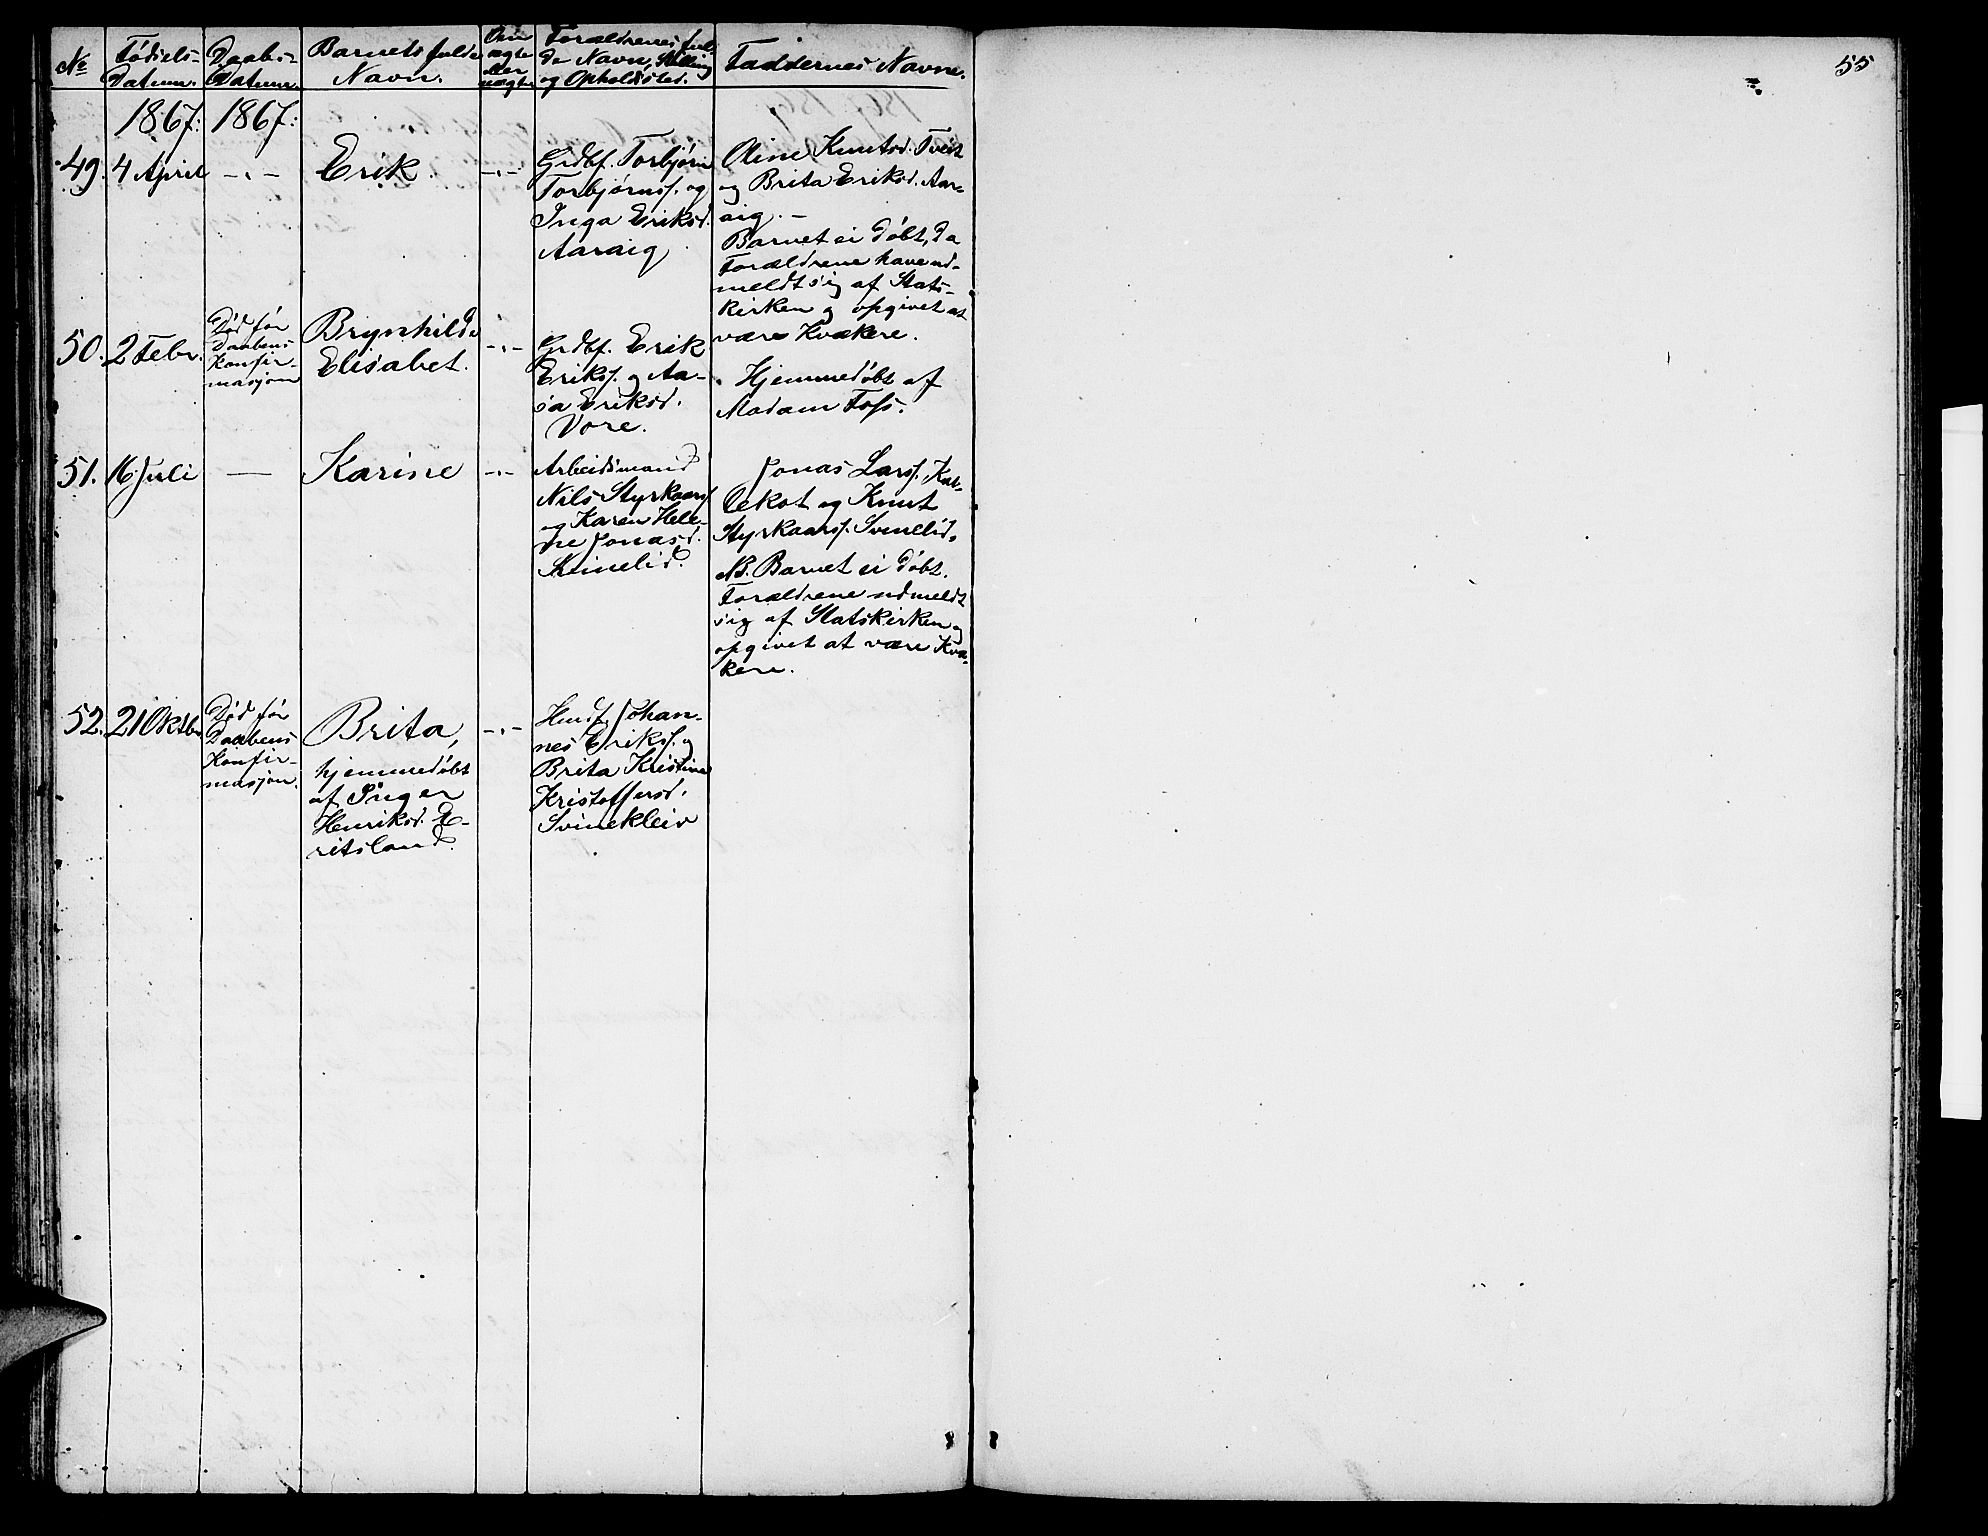 No
Fødsels-
Datum.
Daabs-
Datum.
Barnets fulde
Navn.
Om
ægte
eller
uægte
Forældrenes ful-
de Navn, Stilling
og Opholdssted.
Faddernes Navne.
55
1867: 1867:
49. 4 April -.- Erik. -.-
Grdbf. Torbjørn
Torbjørnsf. og
Inga Eriksd.
Aaraig
Oline Knutsd. Tveit
og Brita Eriksd. Aar-
aig. -
Barnet ei døbt, da
Forældrene have ud-
meldt sig af Stats-
kirken og opgivet at
være Kvækere.
50. 2 Febr.
Død før
Daabens
Konfir-
masjon
Brynhilde
Elisabet.
-.-
Grdbf. Erik
Eriksf. og Aa-
sa Eriksd.
Vore.
Hjemmedøbt af
Madam Foss.
51. 16 Juli — Karine -.-
Arbeidsmand
Nils Styrkaarsf
og Karen Hele-
ne Jonasd.
Jonas Larsf.
og Knut
Styrkaarsf. Svinelid.
NB. Barnet ei døbt.
Forældrene udmeldt
sig af Statskirken og
opgivet at være Kvæ-
kere.
52. 21 Oktbr.
Død før
Daabens
Konfir-
masjon.
Brita,
hjemmedøbt
af Inger
Henriksd. E-
ritsland.
-.-
Husf. Johan-
nes Eriksf. og
Brita Kristine
Kristoffersd.
Svinekleiv